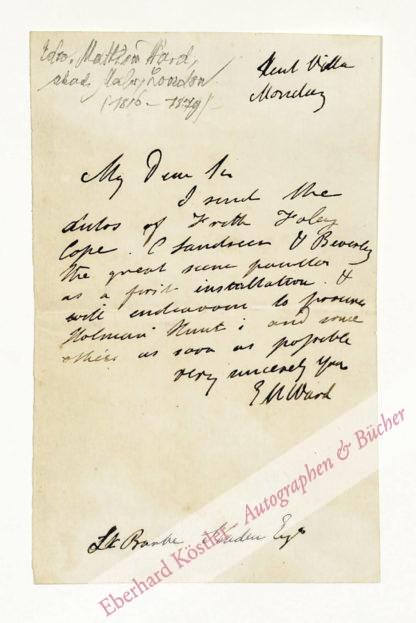 Edw. Matthew Ward,
akad. Maler, London
(1816 - 1879)
Kent Villa
Monday
My Dear Sir
I send the
autos of Frith Foley
Cope. C Landseer & Beverley
the great scene painter
as a first installation. &
will endeavour to procure
Holman Hunt; and some
others as soon as possible
very sincerely yrs
E M Ward
Esqre
Eberhard Köstler Autographen & Bücher